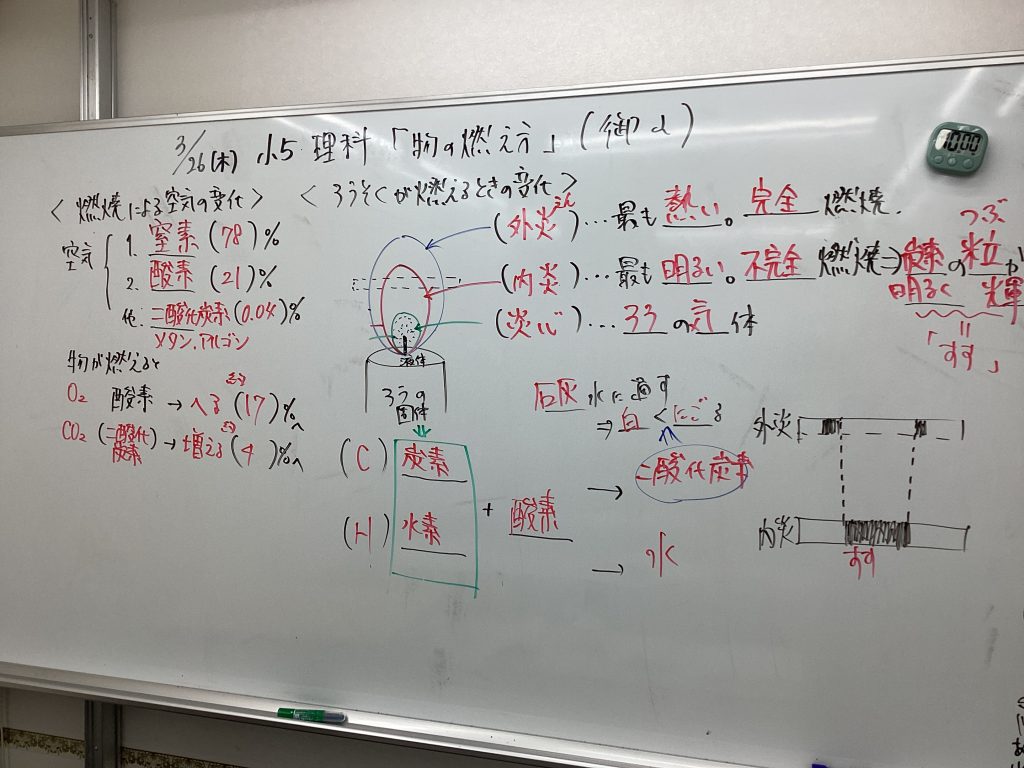 3/26(木) 小5 理科 「物の燃え方」 (御α)
10:00
< 燃焼による空気の変化 >
空気
1. 窒素 (78)%
2. 酸素 (21)%
他. 二酸化炭素 (0.04)%
メタン、アルゴン
物が燃えると
O₂ 酸素 → へる (17)%へ
CO₂ (二酸化炭素) → 増える (4)%へ
< ろうそくが燃えるときの変化 >
(外炎)…最も 熱い。 完全 燃焼.
えん
(内炎)…最も 明るい。不完全 燃焼⇒炭素の粒が
つぶ
明るく 輝
=
「すす」
(炎心)…ろうの気体
液体
ろうの
固体
(C) 炭素
(H) 水素
+ 酸素
→ 二酸化炭素
→ 水
石灰 水に通す
⇒ 白くにごる
外炎
内炎
すす